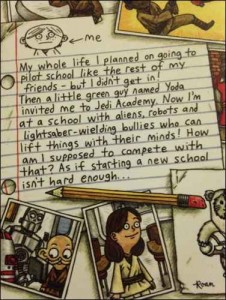 me
My whole life I planned on going to
pilot school like the rest of my
friends - but I didn't get in!
Then a little green guy named Yoda
invited me to Jedi Academy. Now I'm
at a school with aliens, robots and
lightsaber-wielding bullies who can
lift things with their minds! How
am I supposed to compete with
that? As if starting a new school
isn't hard enough...
-Roan